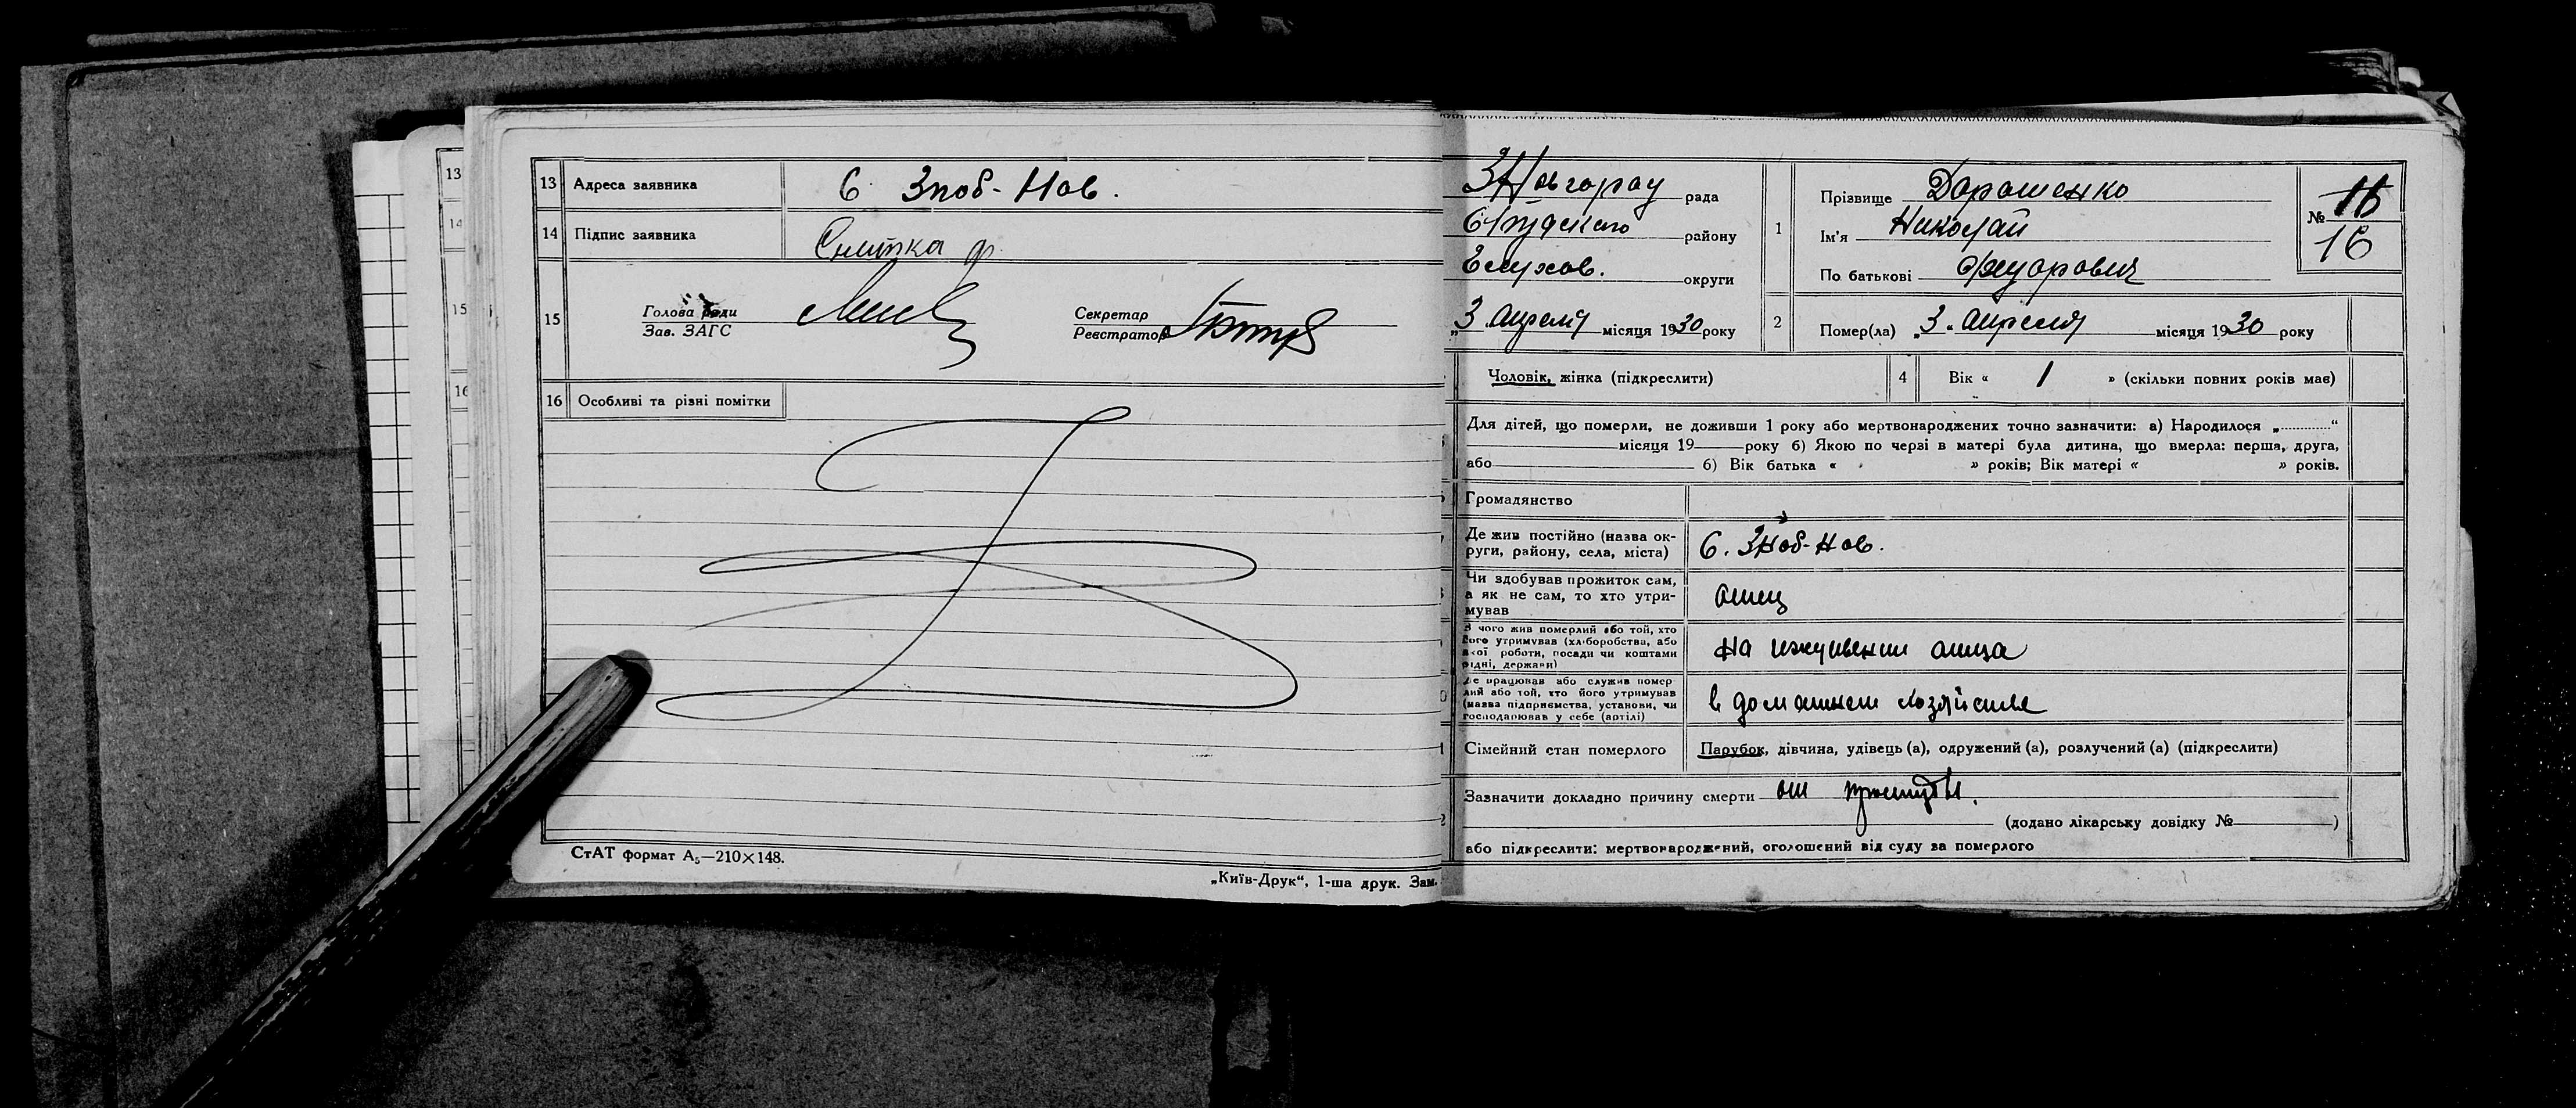 13
14
15
16
13 Адреса заявника С. Зноб-Нов.
14 Підпис заявника Снитка ф.
15 Голова ради
Зав. ЗАГС
Секретар
Реєстратор
16 Особливі та різні помітки
СтАТ формат А₅—210×148.
„Київ-Друк“, 1-ша друк. Зам.
рада
району
Глухов. округи
„3 апреля місяця 1930 року
1 Прізвище Дорошенко
Ім'я Николай
По батькові Федорович
№ 16
2 Помер(ла) „3 „ апреля місяця 1930 року
Чоловік, жінка (підкреслити)
4 Вік « 1 » (скільки повних років мав)
Для дітей, що померли, не доживши 1 року або мертвонароджених точно зазначити: а) Народилося „............“
місяця 19 року б) Якою по черзі в матері була дитина, що вмерла: перша, друга,
або б) Вік батька « » років; Вік матері « » років.
Громадянство
Де жив постійно (назва ок-
руги, району, села, міста) С. Зноб-Нов.
Чи здобував прожиток сам,
а як не сам, то хто утри-
мував отец
З чого жив померлий або той, хто
його утримував (хліборобства, або
якої роботи, посади чи коштами
рідні, держави) На иждивении отца
Де працював або служив помер-
лий або той, хто його утримував
(назва підприємства, установи, чи
господарював у себе (артілі) в домашнем хозяйстве
Сімейний стан померлого Парубок, дівчина, удівець (а), одружений (а), розлучений (а) (підкреслити)
Зазначити докладно причину смерти от простуды.
(додано лікарську довідку № )
або підкреслити: мертвонароджений, оголошений від суду за померлого